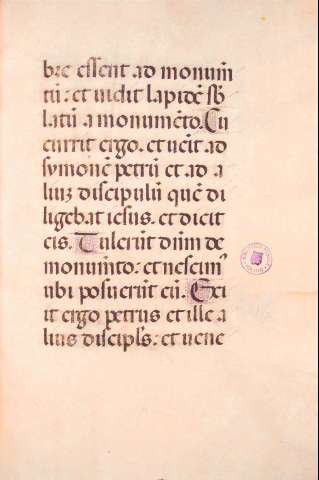 bre essent ad monum̄
tū: et uidit lapidē sb̄
latū a monumēto. Cu
currit ergo. et uēit ad
symonē petrū et ad a
liuȝ discipulū quē di
ligebat iesus. et dicit
eis. Tulerūt dn̄m de
monum̄to: et nescim᷒
ubi posuerūt eū. Exi
it ergo petrus et ille a
lius discipl̄s: et uene